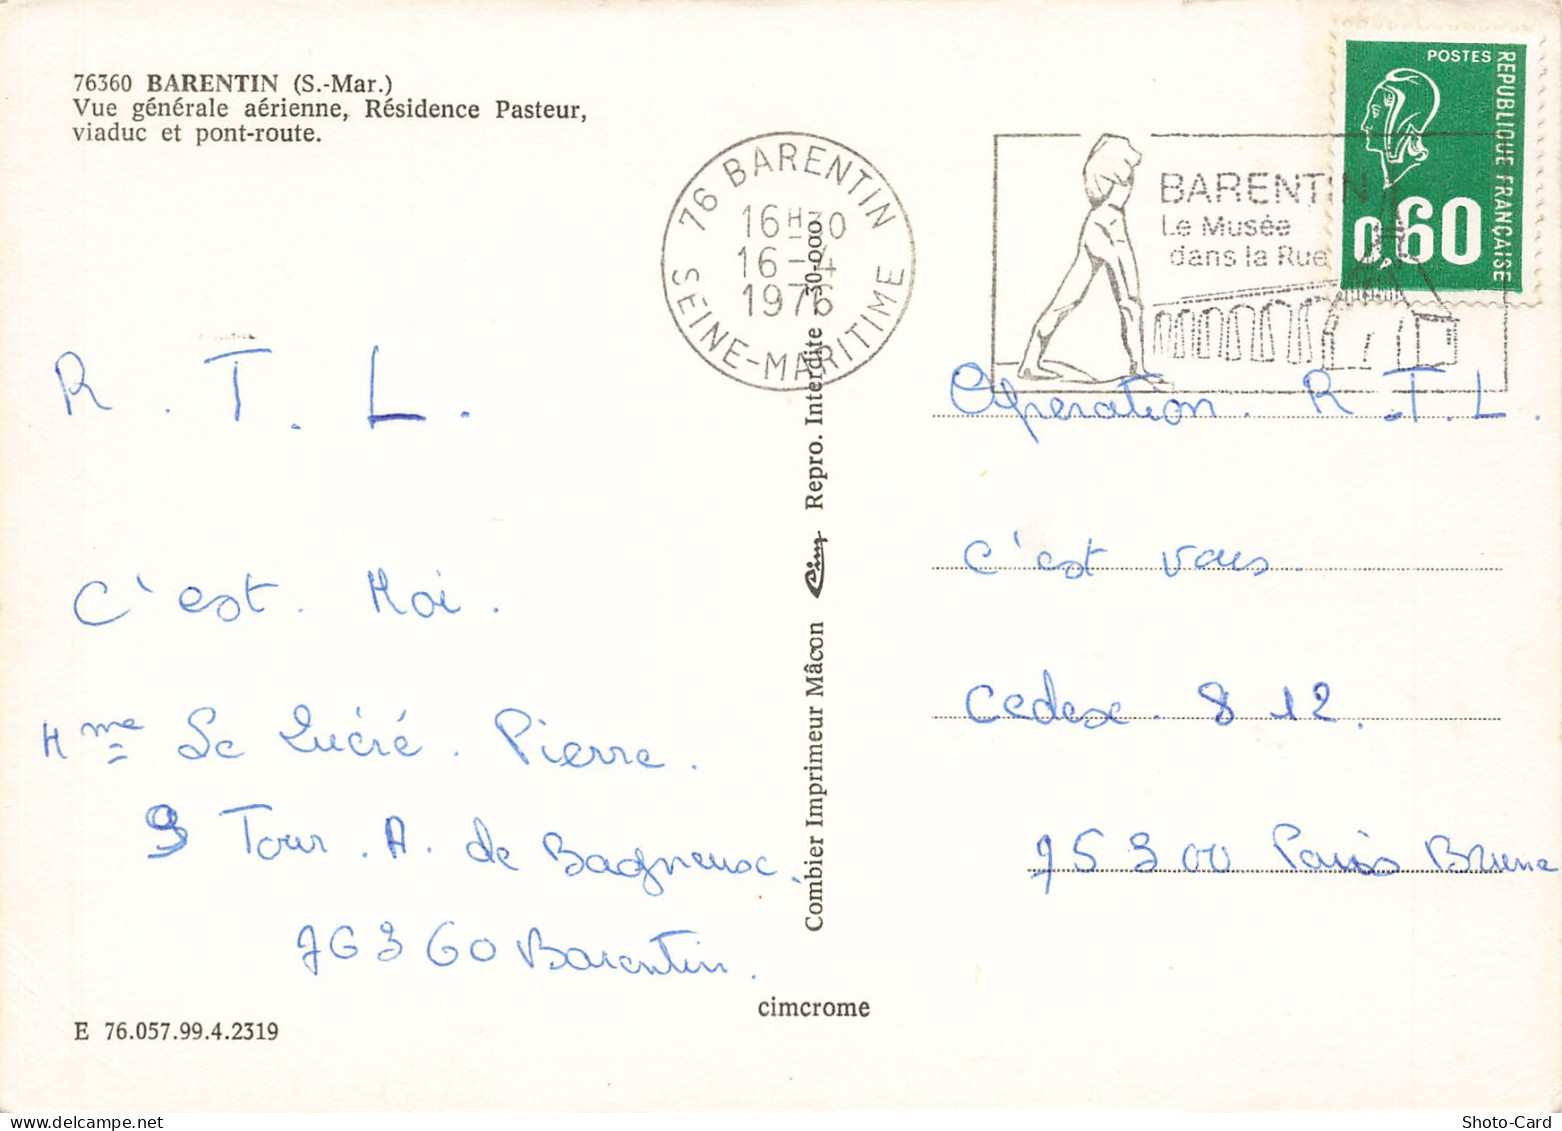 76360 BARENTIN (S.-Mar.)
Vue générale aérienne, Résidence Pasteur,
viaduc et pont-route.
76 BARENTIN
16H30
16-4
1976
SEINE-MARITIME
BARENTIN
Le Musée
dans la Rue
POSTES
REPUBLIQUE FRANÇAISE
0,60
R.T.L.
C'est. Moi.
Mme Le Lucré. Pierre.
9 Tour. A. de Bagneux.
76360 Barentin.
E 76.057.99.4.2319
Combier Imprimeur Mâcon Cim Repro. Interdite - 30-000
cimcrome
Operation. R.T.L.
c'est vous.
Cedex. 812.
75300 Paris Brune
Shoto-Card